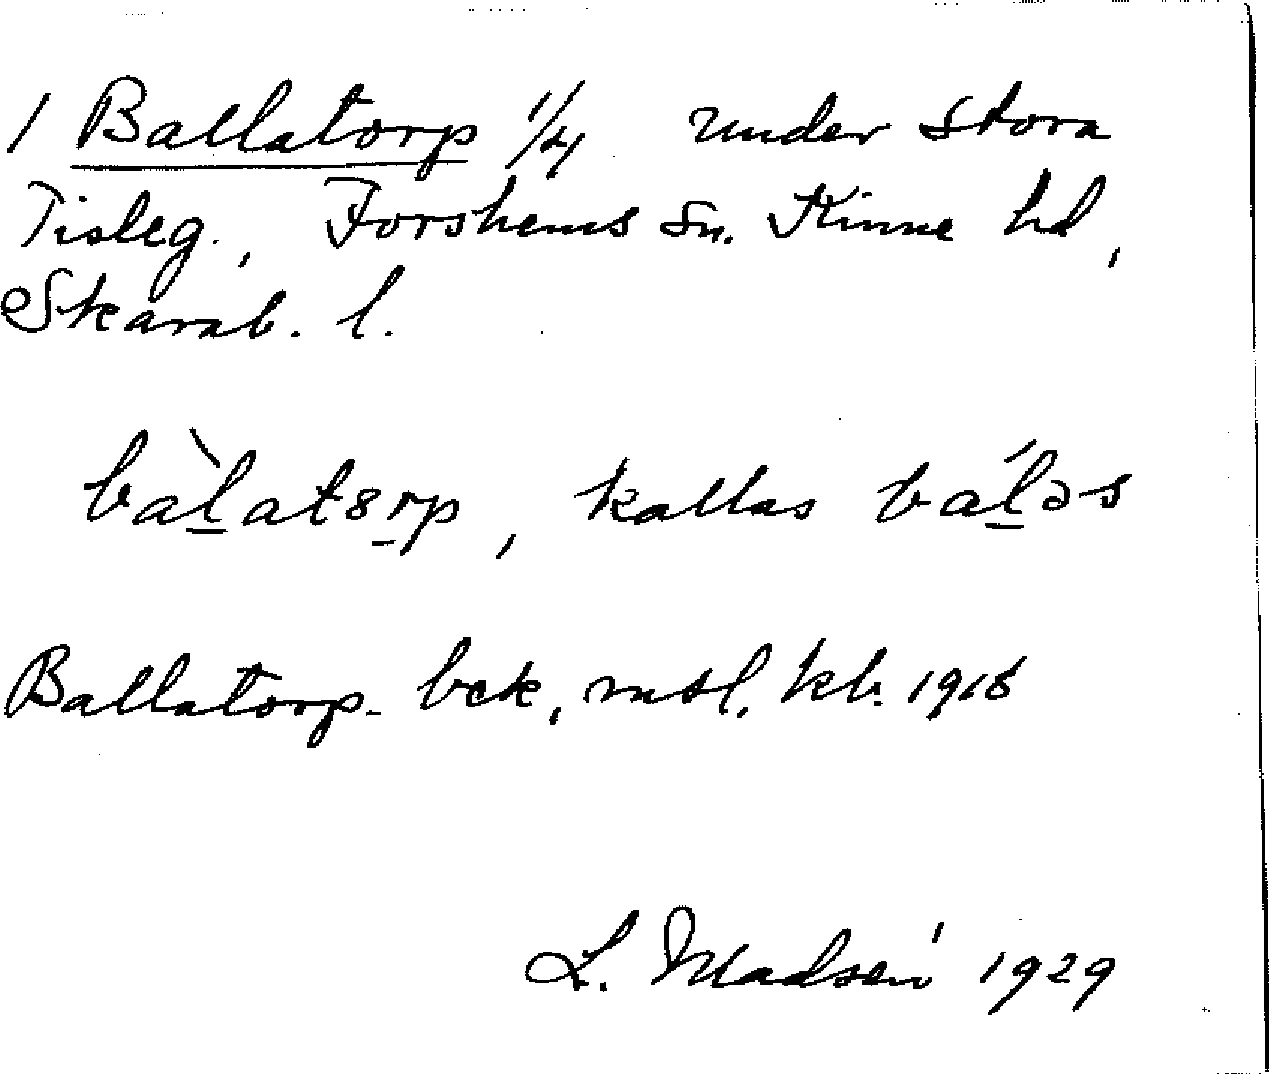 1 Ballatorp 1/4 under Stora
Tisleg., Forshems sn. Kinne hd,
Skarab. l.
bàl̲ats̲rp, kallas bál̲əs
Ballatorp. bek, mtl. kb. 1916
L. Madsén 1929